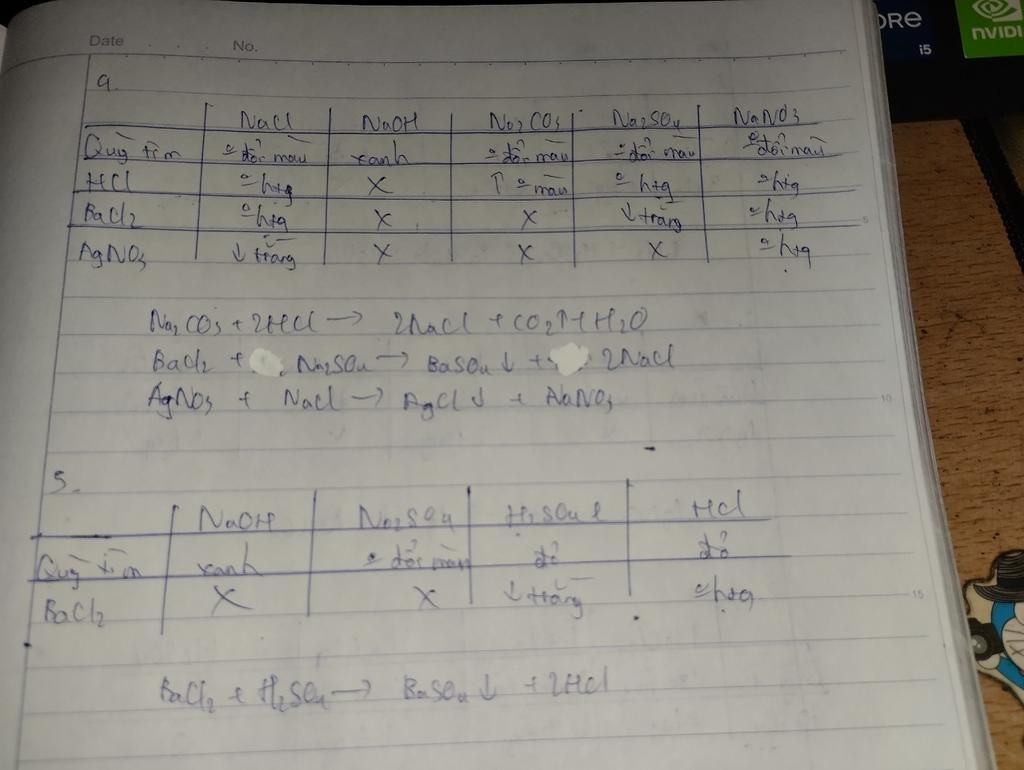 Date . . . No.
ORE
i5
NVIDI
9.
NaCl NaOH Na2CO3 Na2SO4 NaNO3
Quỳ tím o đổi màu xanh o đổi màu o đổi màu o đổi màu
HCl o htg X ↑ o màu o htg o htg
BaCl2 o htg X X ↓ trắng o htg
AgNO3 ↓ trắng X X X o htg
5
Na2CO3 + 2HCl → 2NaCl + CO2↑ + H2O
BaCl2 + Na2SO4 → BaSO4 ↓ + 2NaCl
AgNO3 + NaCl → AgCl ↓ + NaNO3
10
5.
NaOH Na2SO4 H2SO4 l HCl
Quỳ tím xanh o đổi màu đỏ đỏ
BaCl2 X X ↓ trắng o htg
15
BaCl2 + H2SO4 → BaSO4 ↓ + 2HCl